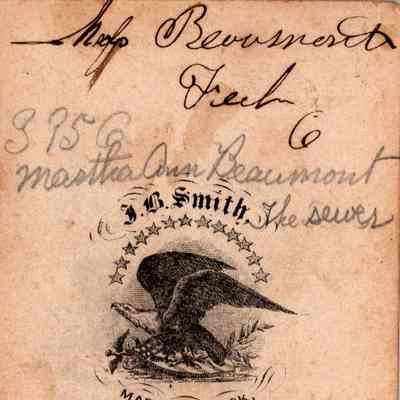 Miss Beaumont
Feeh
6
S 956
Martha Ann Beaumont
J.B. Smith,
The sewer